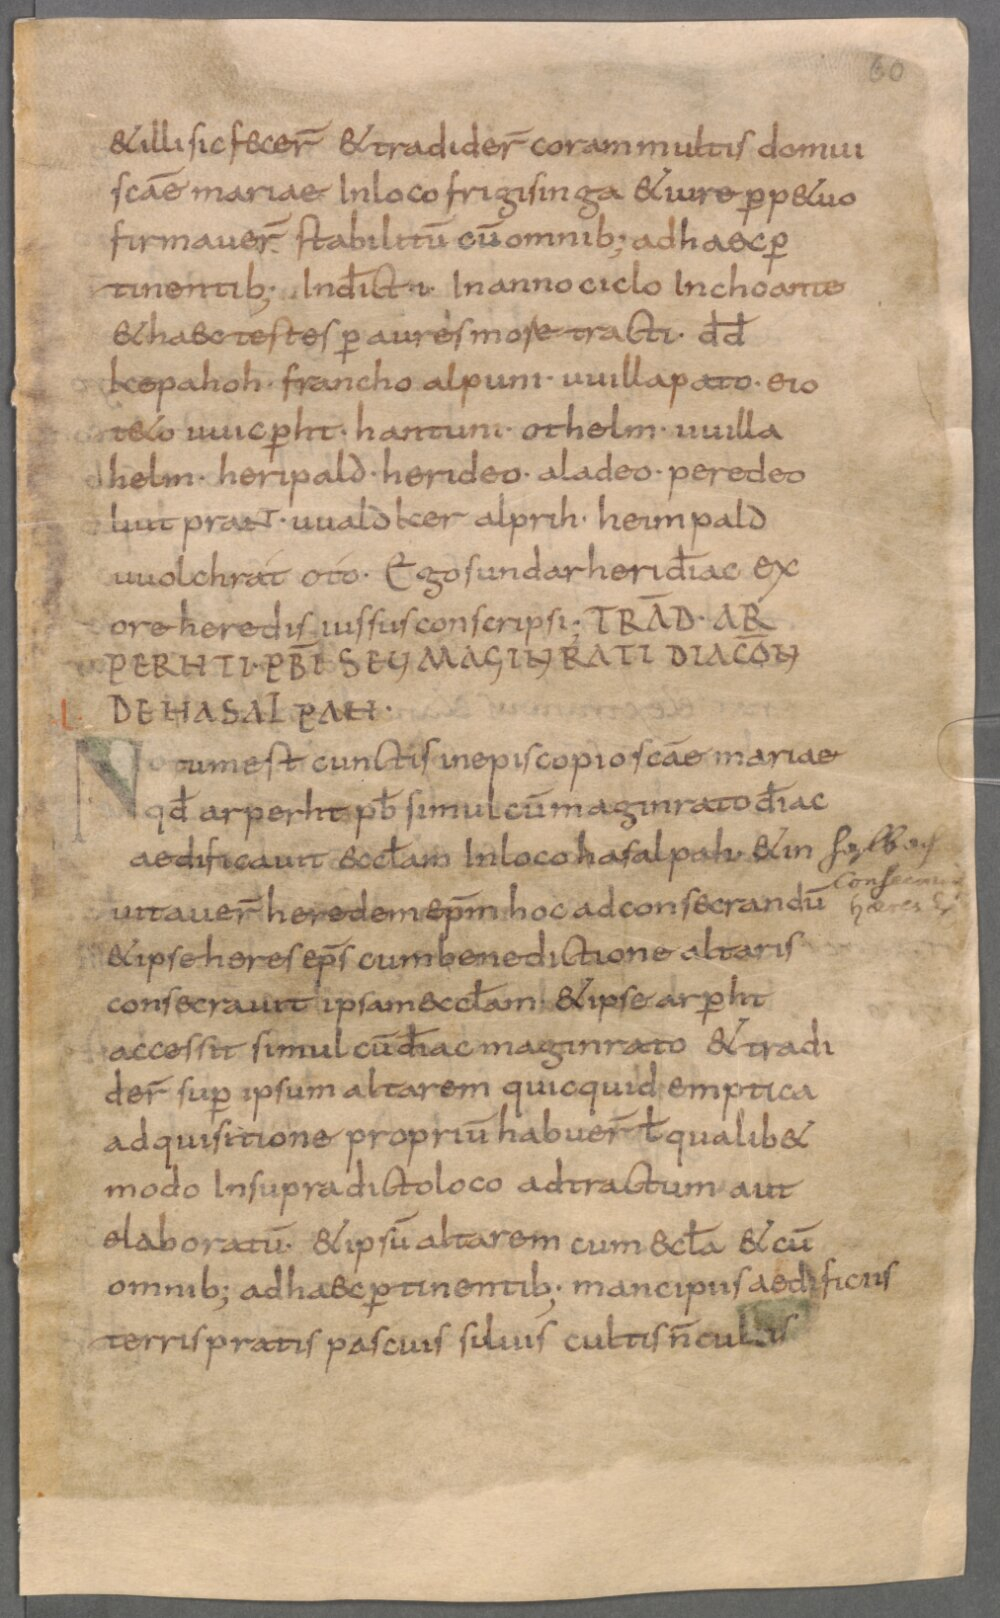 60
&illi sic fecer̄ & tradider̄ coram multis domui
scāe mariae In loco frigisinga & iure ꝑp&uo
firmauer̄ stabilitū cū omnib; ad haec ꝑ
tinentib; Indict ı· In anno ciclo Inchoante
& haec testes ꝑ aures more tracti· dd̄
kepahoh· francho alpuni· uuillapato· eio
t&o uuicꝑht· hantuni· othelm· uuilla
helm· heripald· herideo· aladeo· peredeo
liutprant· uualdker alprih· heimpald
uuolchrat oto· Ego sundarheri diac̄ ex
ore heredis iussus conscripsi; TRAD̄· AR
PERHTI· PB̄I SEU MAGINRATI DIACŌN
DE HASALPAH·
L·
Notum est cunctis in episcopio scāe mariae
qđ arperht pb̄ simul cū maginrato diac̄
aedificauit eccłam In loco hasalpah· & in
uitauer̄ heredem ep̄m hoc ad consecrandū
haslbach
& ipse heres ep̄s cum benedictione altaris
consecrauit ipsam eccłam· & ipse arꝑht
accessit simul cū diac̄ maginrato & tradi
der̄ suꝑ ipsum altarem quicquid emptica
adquisitione propriū habuer̄ ł qualib&
modo In supradicto loco adtractum aut
elaboratū· & ipsū altarem cum eccła & cū
omnib; ad haec ꝑtinentib; mancipiis aedificiis
terris pratis pascuis siluis cultis n̄ cultis